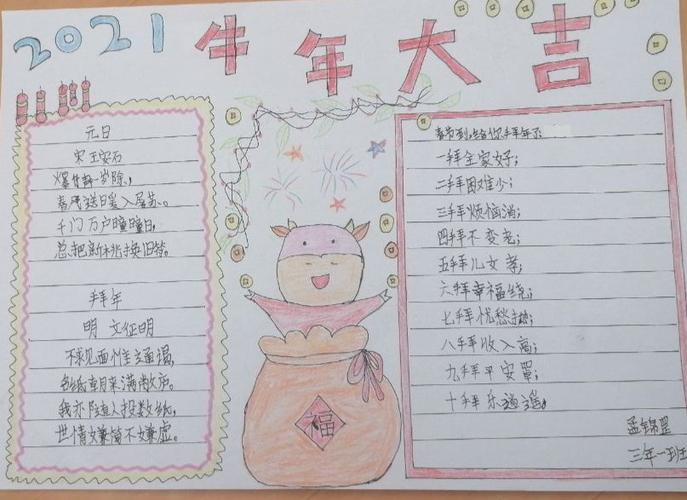 2021 牛年大吉
元日
宋 王安石
爆竹声中一岁除,
春风送日暖入屠苏。
千门万户瞳瞳日,
总把新桃换旧符。
拜年
明 文征明
不求见面惟通谒,
名纸朝来满敝庐。
我亦随人投数纸,
世情嫌简不嫌虚。
福
春节到,给你拜年了
一拜全家好;
二拜困难少;
三拜烦恼消;
四拜不变老;
五拜儿女孝;
六拜幸福绕;
七拜忧愁抛;
八拜收入高;
九拜平安罩;
十拜乐逍遥。
孟锦罡
三年一班